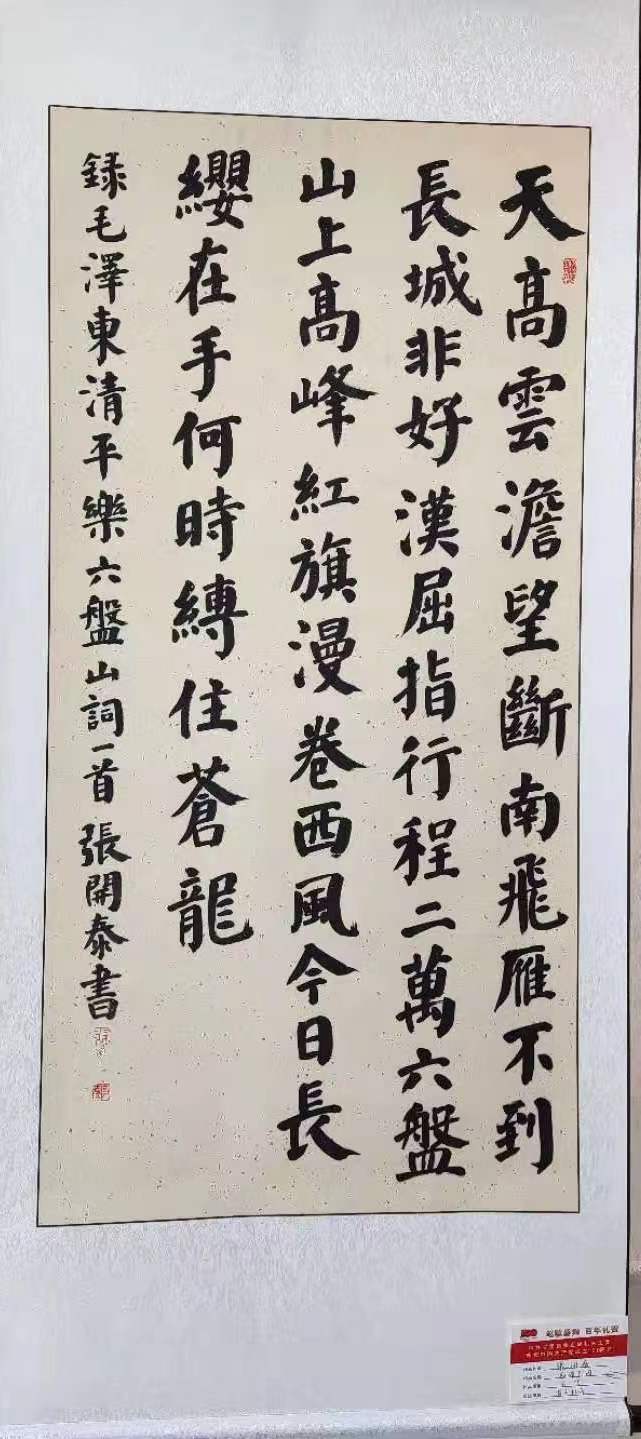 天高雲澹望斷南飛雁不到
長城非好漢屈指行程二萬六盤
山上高峰紅旗漫卷西風今日長
纓在手何時縛住蒼龍
録毛澤東清平樂六盤山詞一首 張開泰書